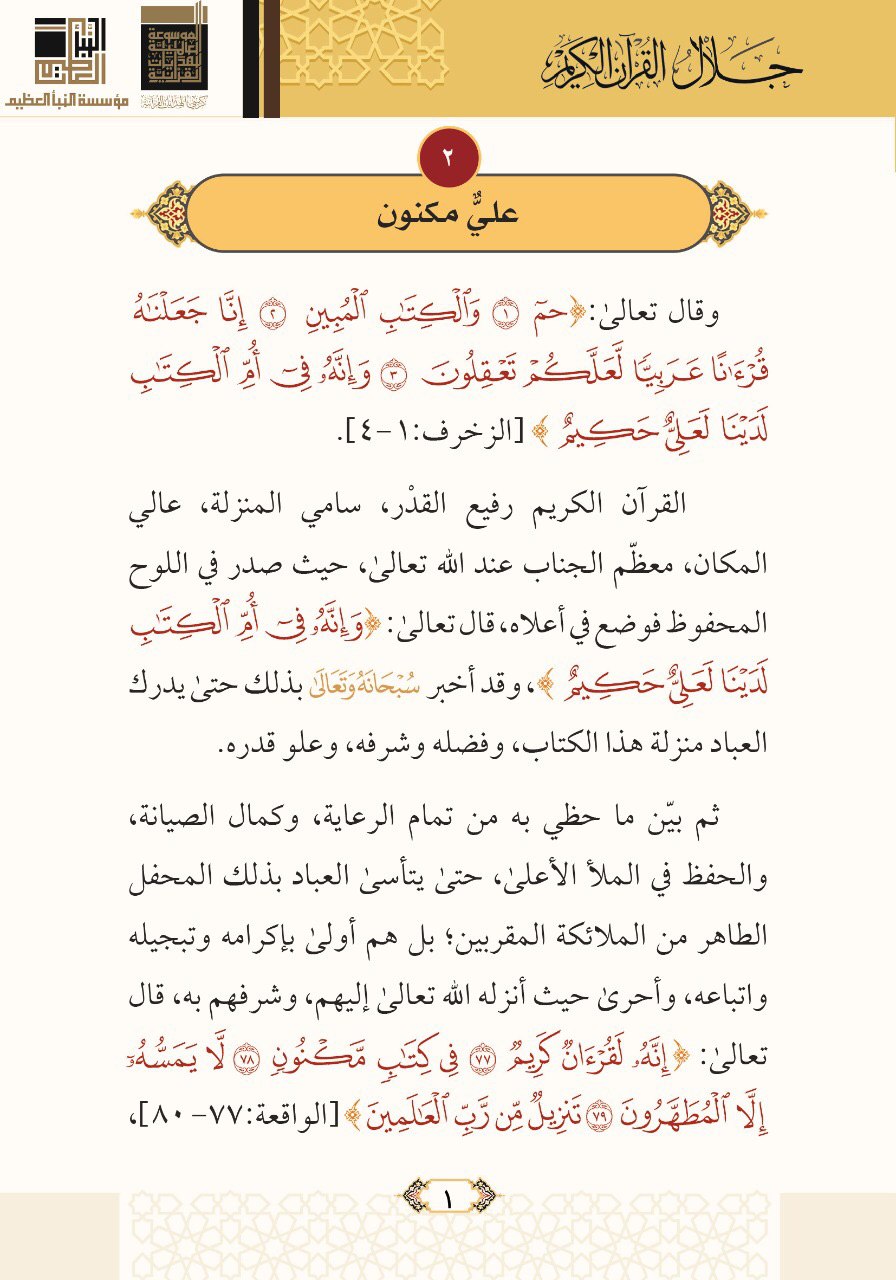 جلال القرآن الكريم
النبأ العظيم
مؤسسة النبأ العظيم
٢
عليٌّ مكنون
وقال تعالىٰ: ﴿حمٓ ١ وَٱلْكِتَٰبِ ٱلْمُبِينِ ٢ إِنَّا جَعَلْنَٰهُ
قُرْءَٰنًا عَرَبِيًّا لَّعَلَّكُمْ تَعْقِلُونَ ٣ وَإِنَّهُۥ فِىٓ أُمِّ ٱلْكِتَٰبِ
لَدَيْنَا لَعَلِىٌّ حَكِيمٌ﴾ [الزخرف:١-٤].
القرآن الكريم رفيع القدْر، سامي المنزلة، عالي
المكان، معظّم الجناب عند الله تعالىٰ، حيث صدر في اللوح
المحفوظ فوضع في أعلاه، قال تعالىٰ: ﴿وَإِنَّهُۥ فِىٓ أُمِّ ٱلْكِتَٰبِ
لَدَيْنَا لَعَلِىٌّ حَكِيمٌ﴾، وقد أخبر سُبْحَانَهُ وَتَعَالَىٰ بذلك حتىٰ يدرك
العباد منزلة هذا الكتاب، وفضله وشرفه، وعلو قدره.
ثم بيّن ما حظي به من تمام الرعاية، وكمال الصيانة،
والحفظ في الملأ الأعلىٰ، حتىٰ يتأسىٰ العباد بذلك المحفل
الطاهر من الملائكة المقربين؛ بل هم أولىٰ بإكرامه وتبجيله
واتباعه، وأحرىٰ حيث أنزله الله تعالىٰ إليهم، وشرفهم به، قال
تعالىٰ: ﴿إِنَّهُۥ لَقُرْءَانٌ كَرِيمٌ ٧٧ فِى كِتَٰبٍ مَّكْنُونٍ ٧٨ لَّا يَمَسُّهُۥٓ
إِلَّا ٱلْمُطَهَّرُونَ ٧٩ تَنزِيلٌ مِّن رَّبِّ ٱلْعَٰلَمِينَ﴾ [الواقعة:٧٧-٨٠]،
١